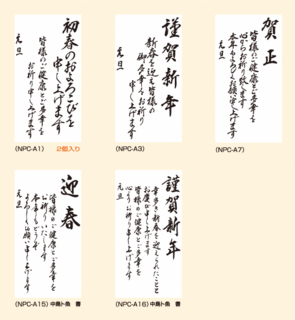 初春のおよろこびを
申し上げます
皆様のご健康とご多幸を
お祈り申し上げます
元旦
(NPC-A1)
2個入り
謹賀新年
新春を迎え皆様の
御多幸をお祈り
申し上げます
元旦
(NPC-A3)
賀正
皆様のご健康とご多幸を
心からお祈り致します
本年もよろしくお願い申し上げます
元旦
(NPC-A7)
迎春
皆様のご健康とご多幸を
お祈りいたします
本年もどうぞ
よろしくお願い申し上げます
元旦
(NPC-A15) 中島ト魚 書
謹賀新年
幸多き新春を迎えられたことと
お慶び申し上げます
皆様のご健康とご多幸を
心よりお祈り申し上げます
元旦
(NPC-A16) 中島ト魚 書